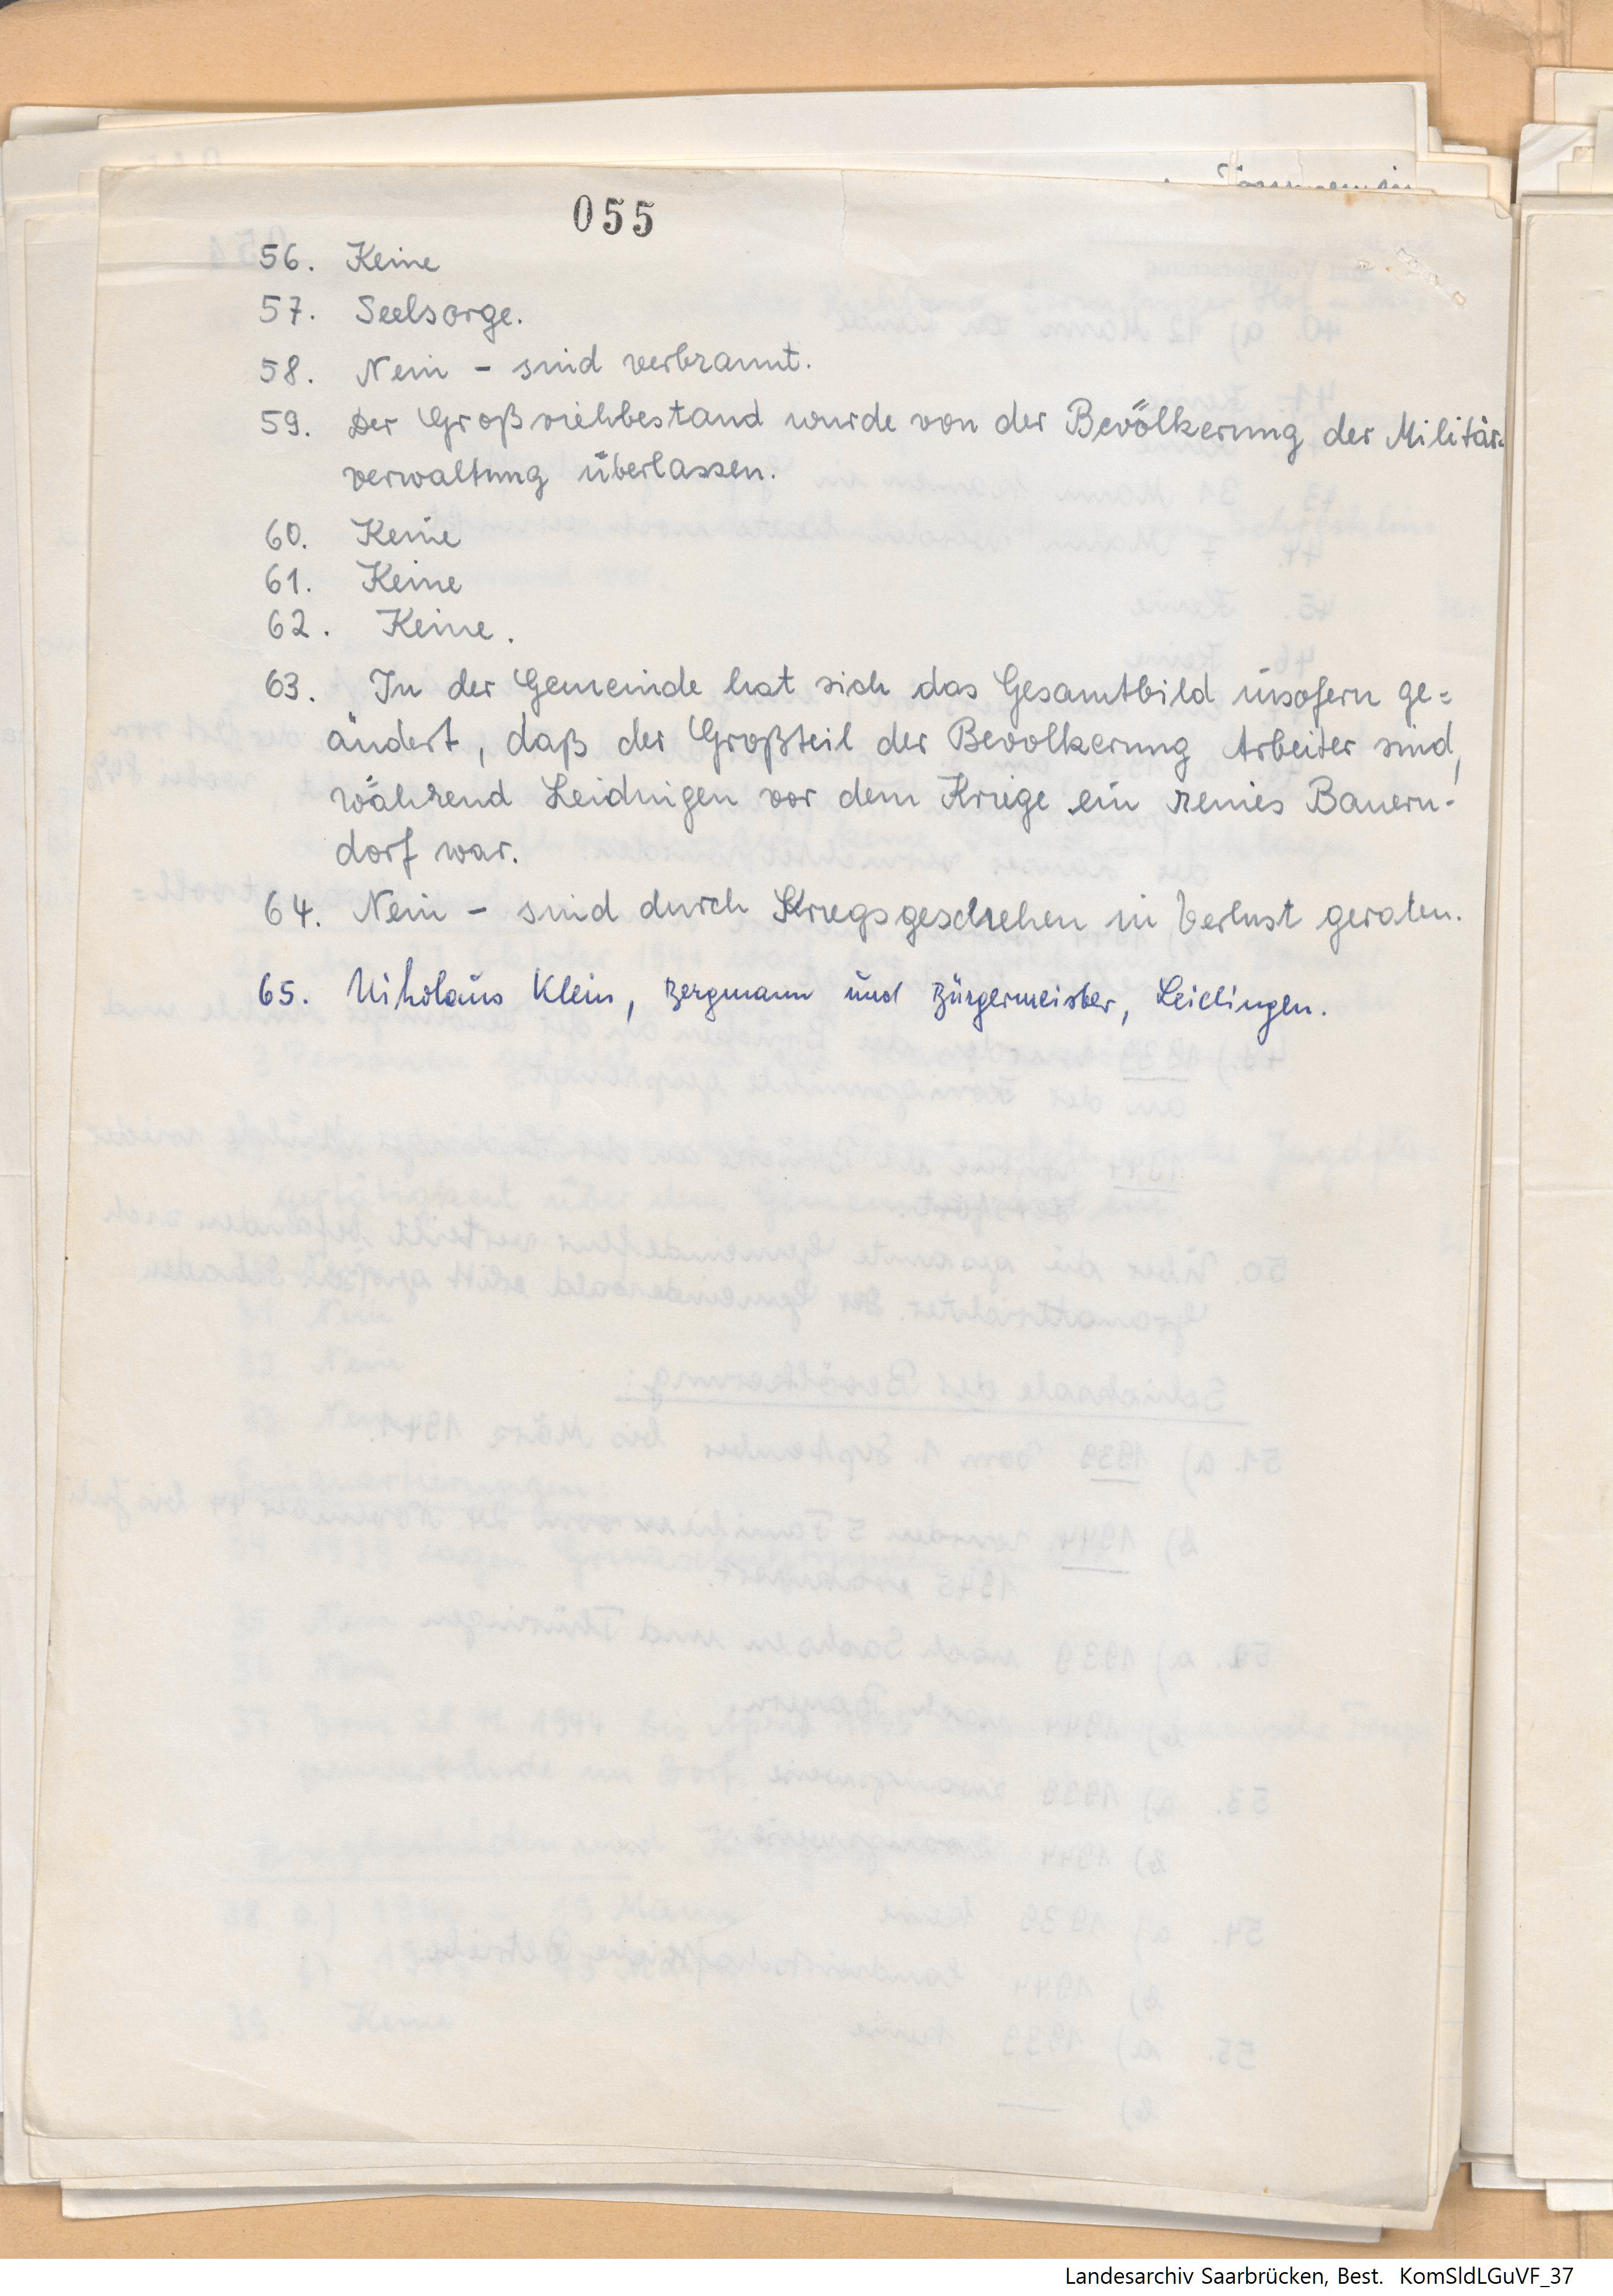 055
56. Keine
57. Seelsorge.
58. Nein - sind verbrannt.
59. Der Großviehbestand wurde von der Bevölkerung der Militär-
verwaltung überlassen.
60. Keine
61. Keine
62. Keine.
63. In der Gemeinde hat sich das Gesamtbild insofern ge=
ändert, daß der Großteil der Bevölkerung Arbeiter sind,
während Leidingen vor dem Kriege ein reines Bauern-
dorf war.
64. Nein - sind durch Kriegsgeschehen in Verlust geraten.
65. Nikolaus Klein, Bergmann und Bürgermeister, Leidingen.
Landesarchiv Saarbrücken, Best. KomSldLGuVF_37